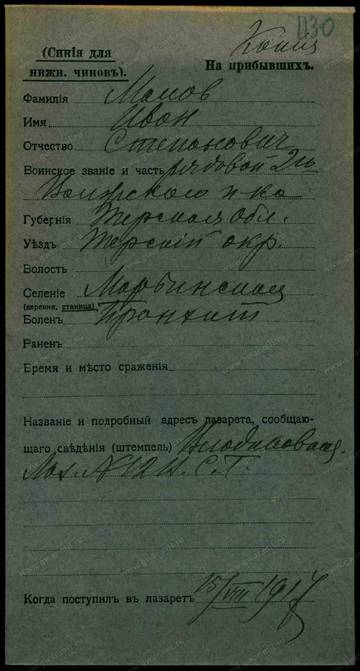 1130
Копия
(Синія для
нижн. чиновъ).
На прибывшихъ.
Фамилія Мамов
Имя Иван
Отчество Степанович
Воинское званіе и часть рядовой 2го
полка
Губернія Терская обл.
Уѣздъ Терскій окр.
Волость
Селеніе
(деревня, станица)
Боленъ Бронхит
Раненъ
Время и мѣсто сраженія
Названіе и подробный адресъ лазарета, сообщаю-
щаго свѣдѣнія (штемпель)
Лаз. №12 И. С. Г.
Когда поступилъ в лазаретъ 15/VIII 1917